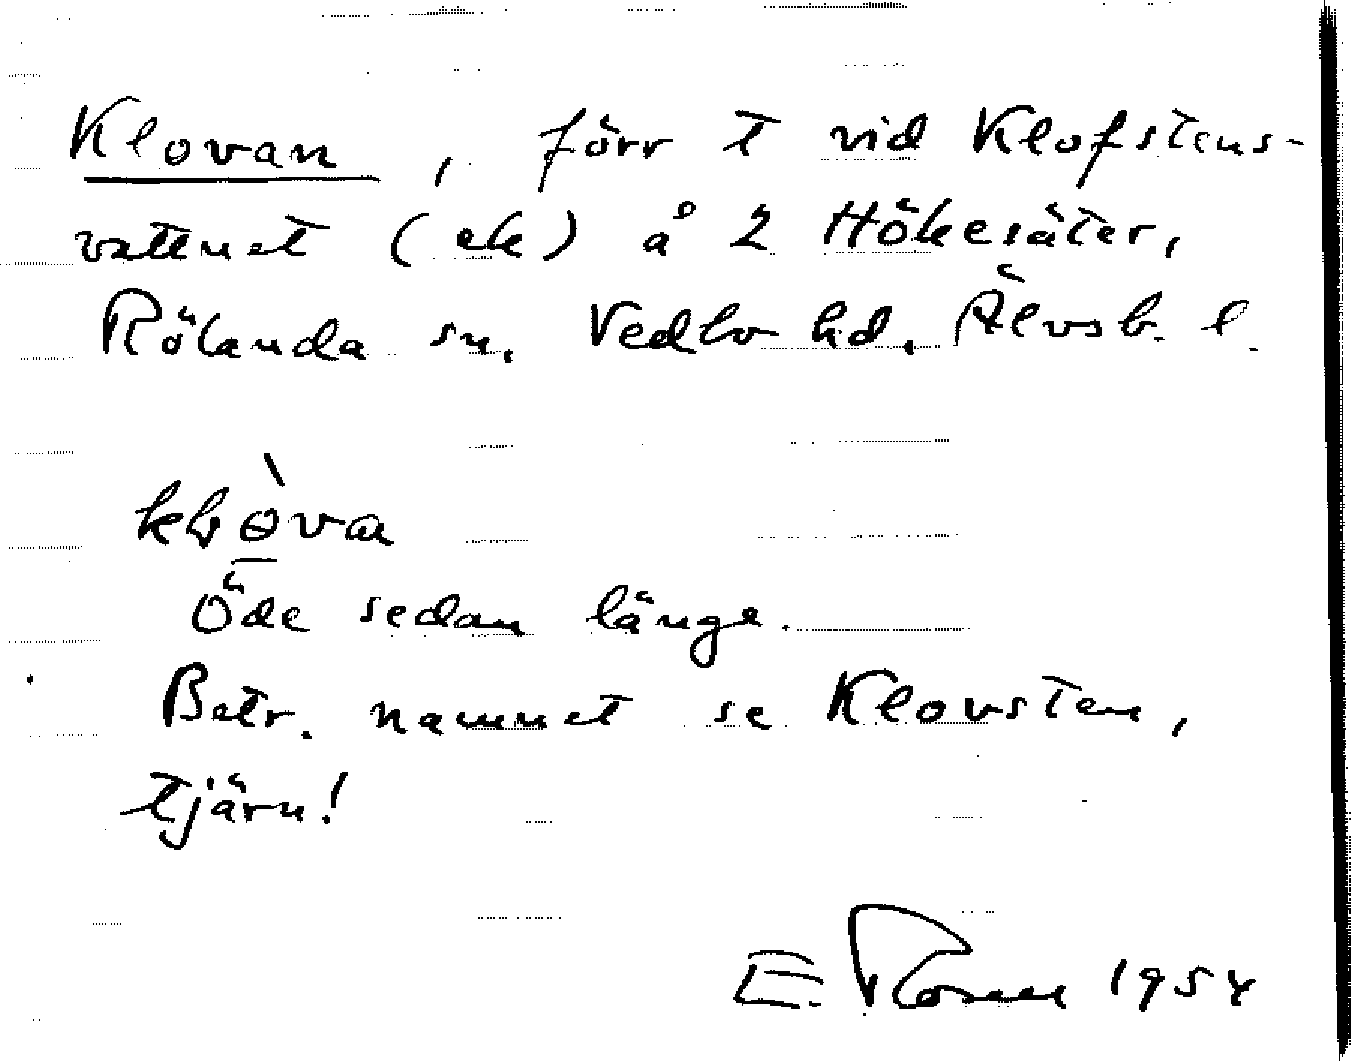 Klovan, förr t vid Klofstens-
vattnet (ek) å 2 Hökesäter,
Rölanda sn. Vedbo hd. Älvsb. l.
Öde sedan länge.
Betr. namnet se Klovsten,
tjärn!
E. Rosell 1954